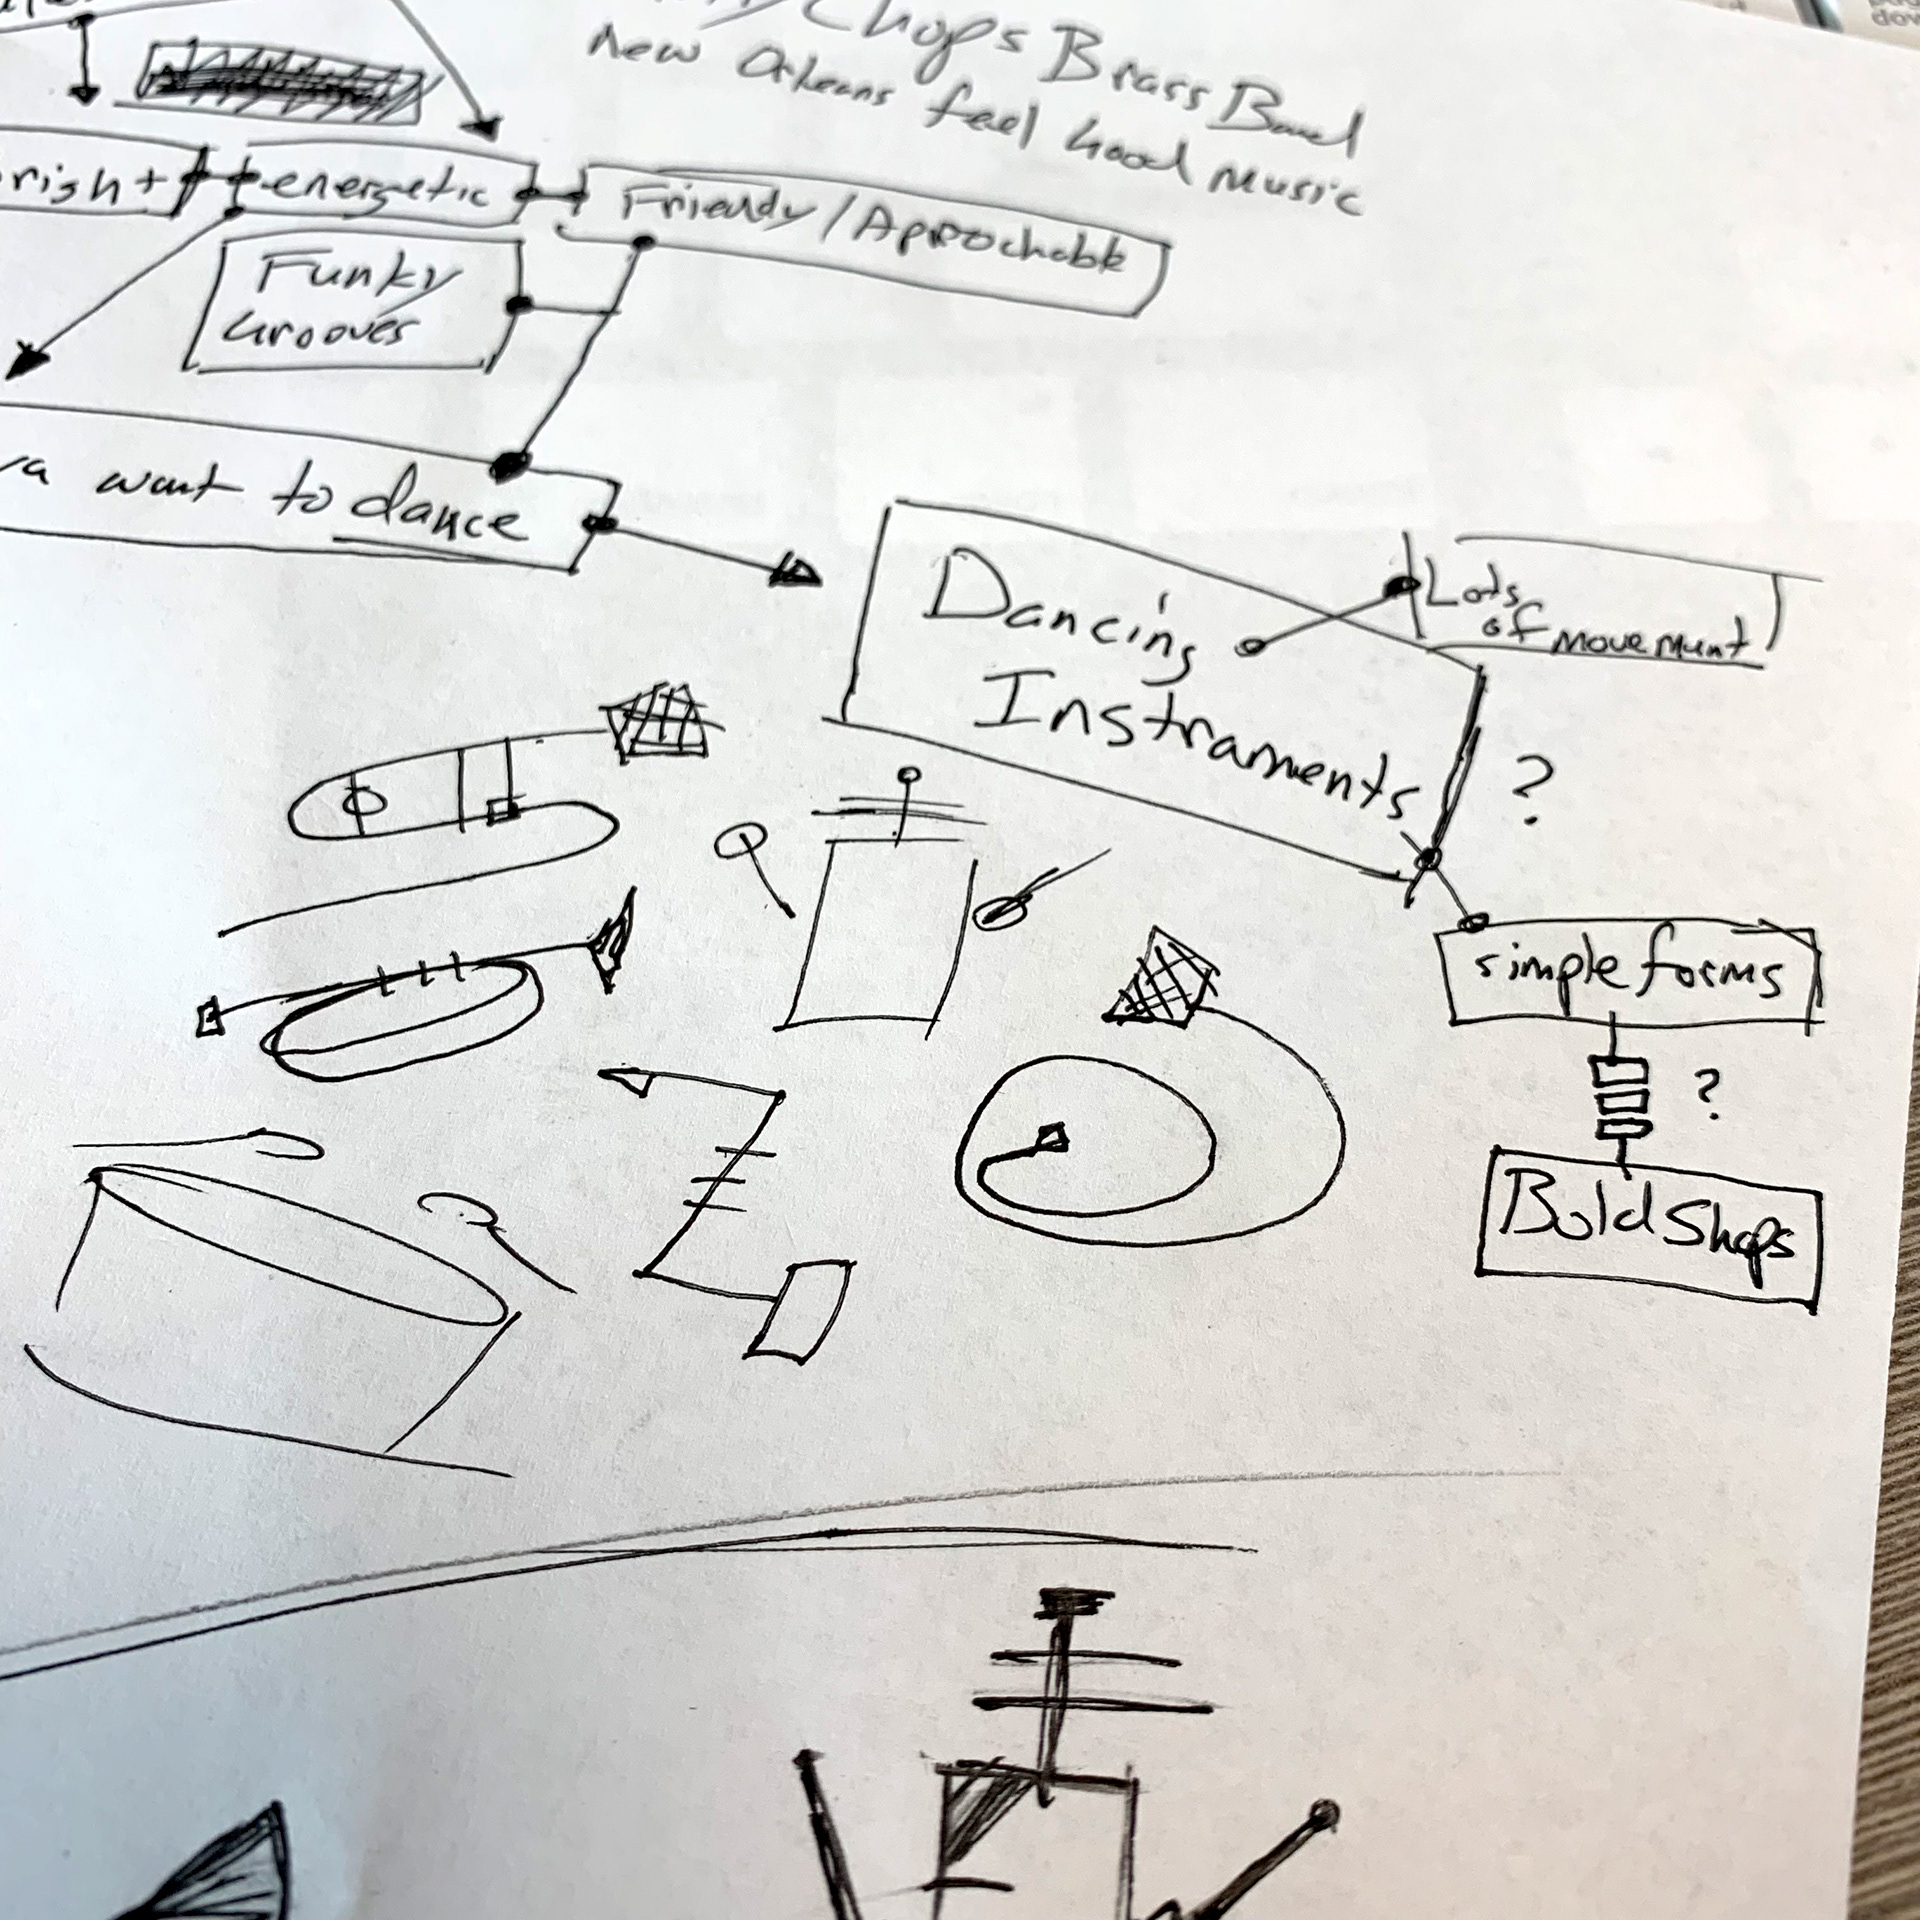 Chops Brass Band
New Orleans feel Good Music
energetic
Friendy/Approchable
Funky
Grooves
want to dance
Dancing
Instraments
Lots
of movemunt
?
simple forms
?
Bold Shaps